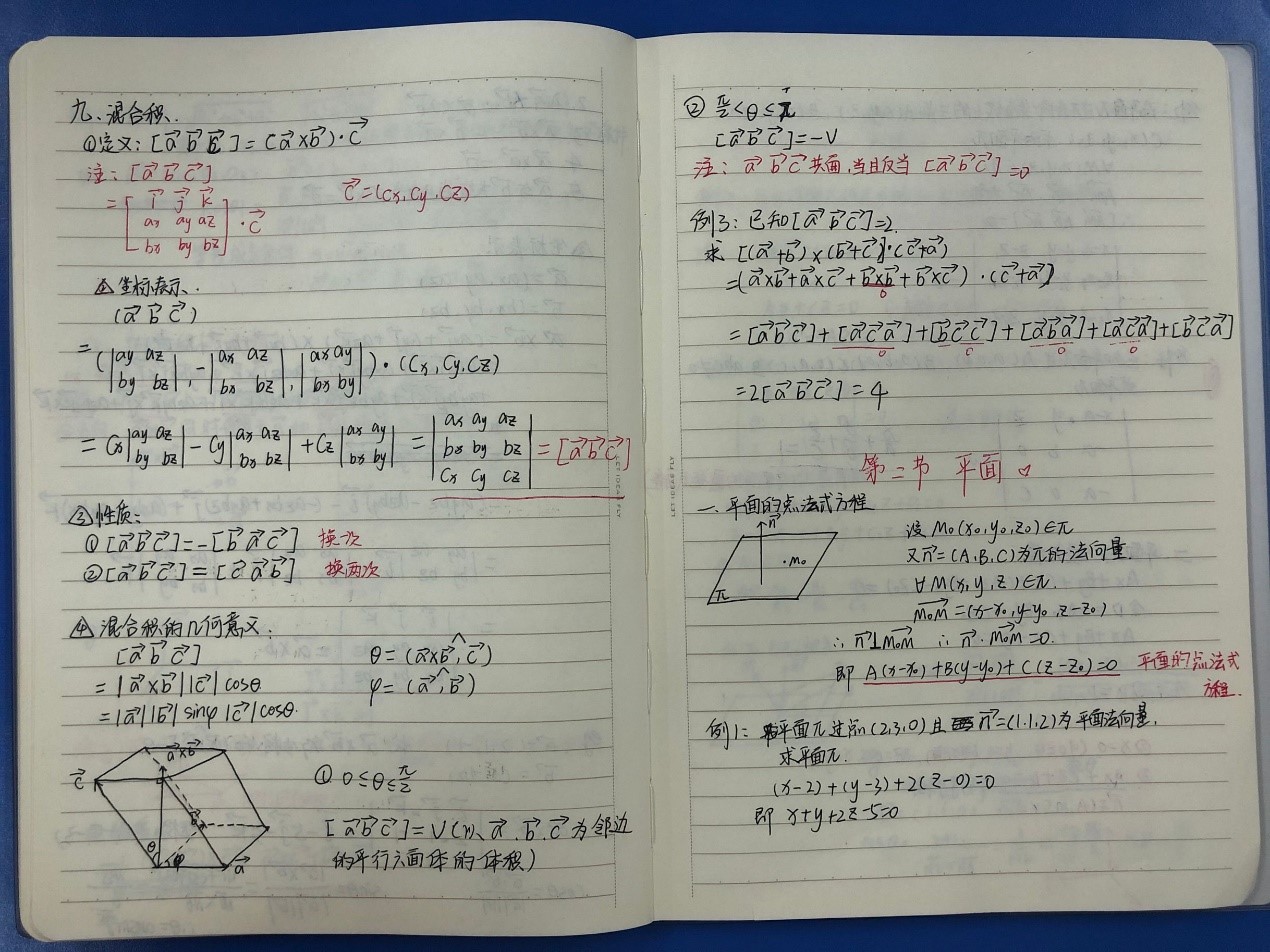 九、混合积.
①定义: [a⃗ b⃗ c⃗] = (a⃗×b⃗)·c⃗
注: [a⃗ b⃗ c⃗]
= [i⃗ j⃗ k⃗
ax ay az
bx by bz] ·c⃗ c⃗=(Cx,Cy,Cz)
② 坐标表示.
(a⃗ b⃗ c⃗)
= (|ay az
by bz|, -|ax az
bx bz|, |ax ay
bx by|)·(Cx,Cy,Cz)
= Cx|ay az
by bz| - Cy|ax az
bx bz| + Cz|ax ay
bx by| = |ax ay az
bx by bz
Cx Cy Cz| = [a⃗ b⃗ c⃗]
③性质:
①[a⃗ b⃗ c⃗]=-[b⃗ a⃗ c⃗] 换一次
②[a⃗ b⃗ c⃗]=[c⃗ a⃗ b⃗] 换两次
④ 混合积的几何意义:
[a⃗ b⃗ c⃗] θ=(a⃗×b⃗^,c⃗)
=|a⃗×b⃗||c⃗|cosθ φ=(a⃗^,b⃗)
=|a⃗||b⃗|sinφ|c⃗|cosθ.
a⃗×b⃗
c⃗
b⃗
θ φ a⃗
① 0≤θ≤π/2
[a⃗ b⃗ c⃗]=V(以 a⃗.b⃗.c⃗为邻边
的平行六面体的体积)
② π/2<θ≤π
[a⃗ b⃗ c⃗]=-V
注: a⃗ b⃗ c⃗共面,当且反当 [a⃗ b⃗ c⃗]=0
例3:已知[a⃗ b⃗ c⃗]=2.
求 [(a⃗+b⃗)×(b⃗+c⃗)]·(c⃗+a⃗)
=(a⃗×b⃗+a⃗×c⃗+b⃗×b⃗+b⃗×c⃗)·(c⃗+a⃗)]
0
=[a⃗b⃗c⃗]+[a⃗c⃗a⃗]+[b⃗c⃗c⃗]+[a⃗b⃗a⃗]+[a⃗c⃗a⃗]+[b⃗c⃗a⃗]
0 0 0 0
=2[a⃗ b⃗ c⃗]=4
第二节 平面 ♡
一.平面的点法式方程
n⃗
·M₀
π
设M₀(x₀,y₀,z₀)∈π
又n⃗=(A,B,C)为π的法向量.
∀M(x,y,z)∈π.
M₀M⃗=(x-x₀,y-y₀,z-z₀)
∴n⃗⊥M₀M⃗ ∴n⃗·M₀M⃗=0.
即 A(x-x₀)+B(y-y₀)+C(z-z₀)=0 平面的点法式
方程.
例1: 平面π过点(2,3,0)且n⃗=(1.1.2)为平面法向量.
求平面π.
(x-2)+(y-3)+2(z-0)=0
即 x+y+2z-5=0
LET IDEAS FLY
LET IDEAS FLY